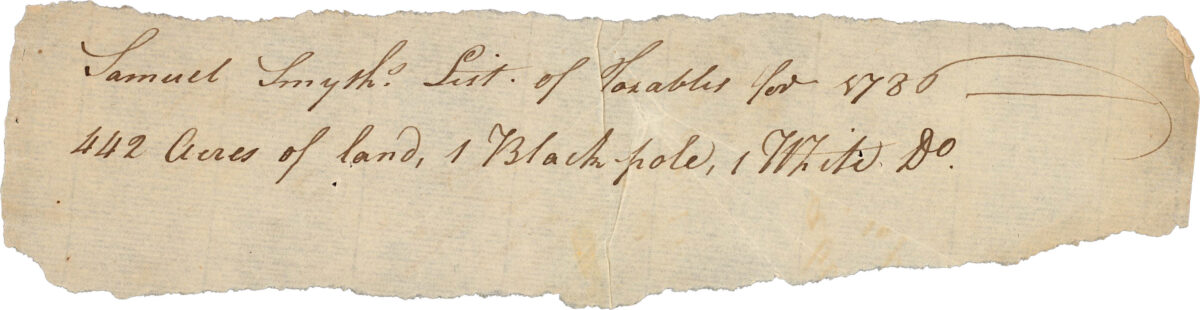 Samuel Smyths List of Taxables for 1786
442 Acres of land, 1 Black pole, 1 White Do.